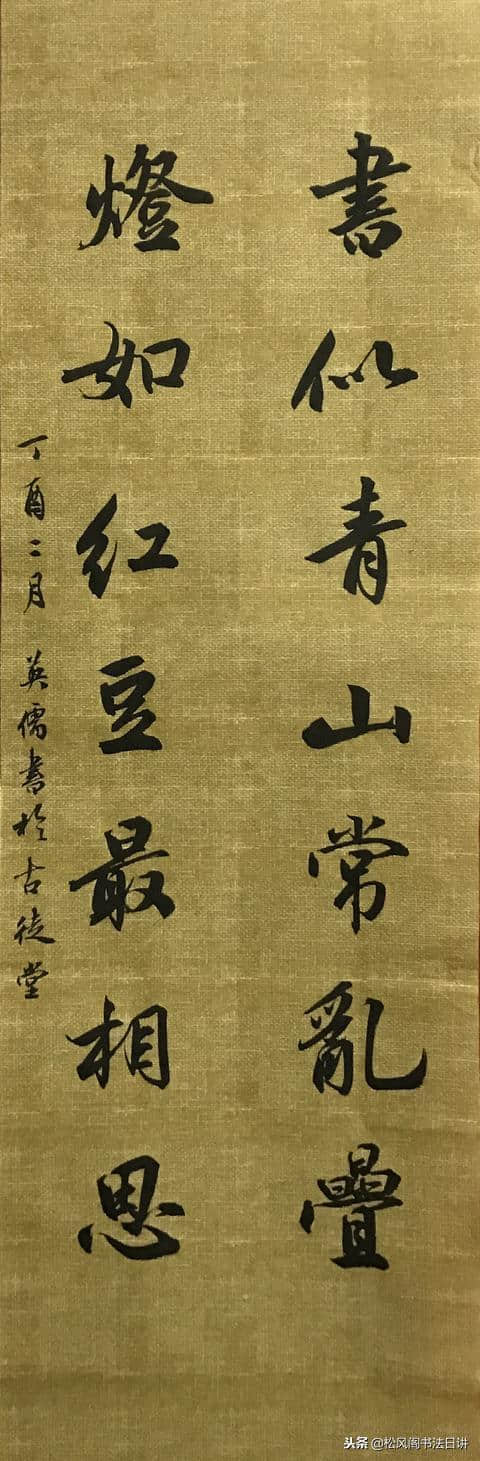 書似青山常亂疊
燈如红豆最相思
丁酉二月 英儒書於古徒堂
头条 @松风阁书法日讲